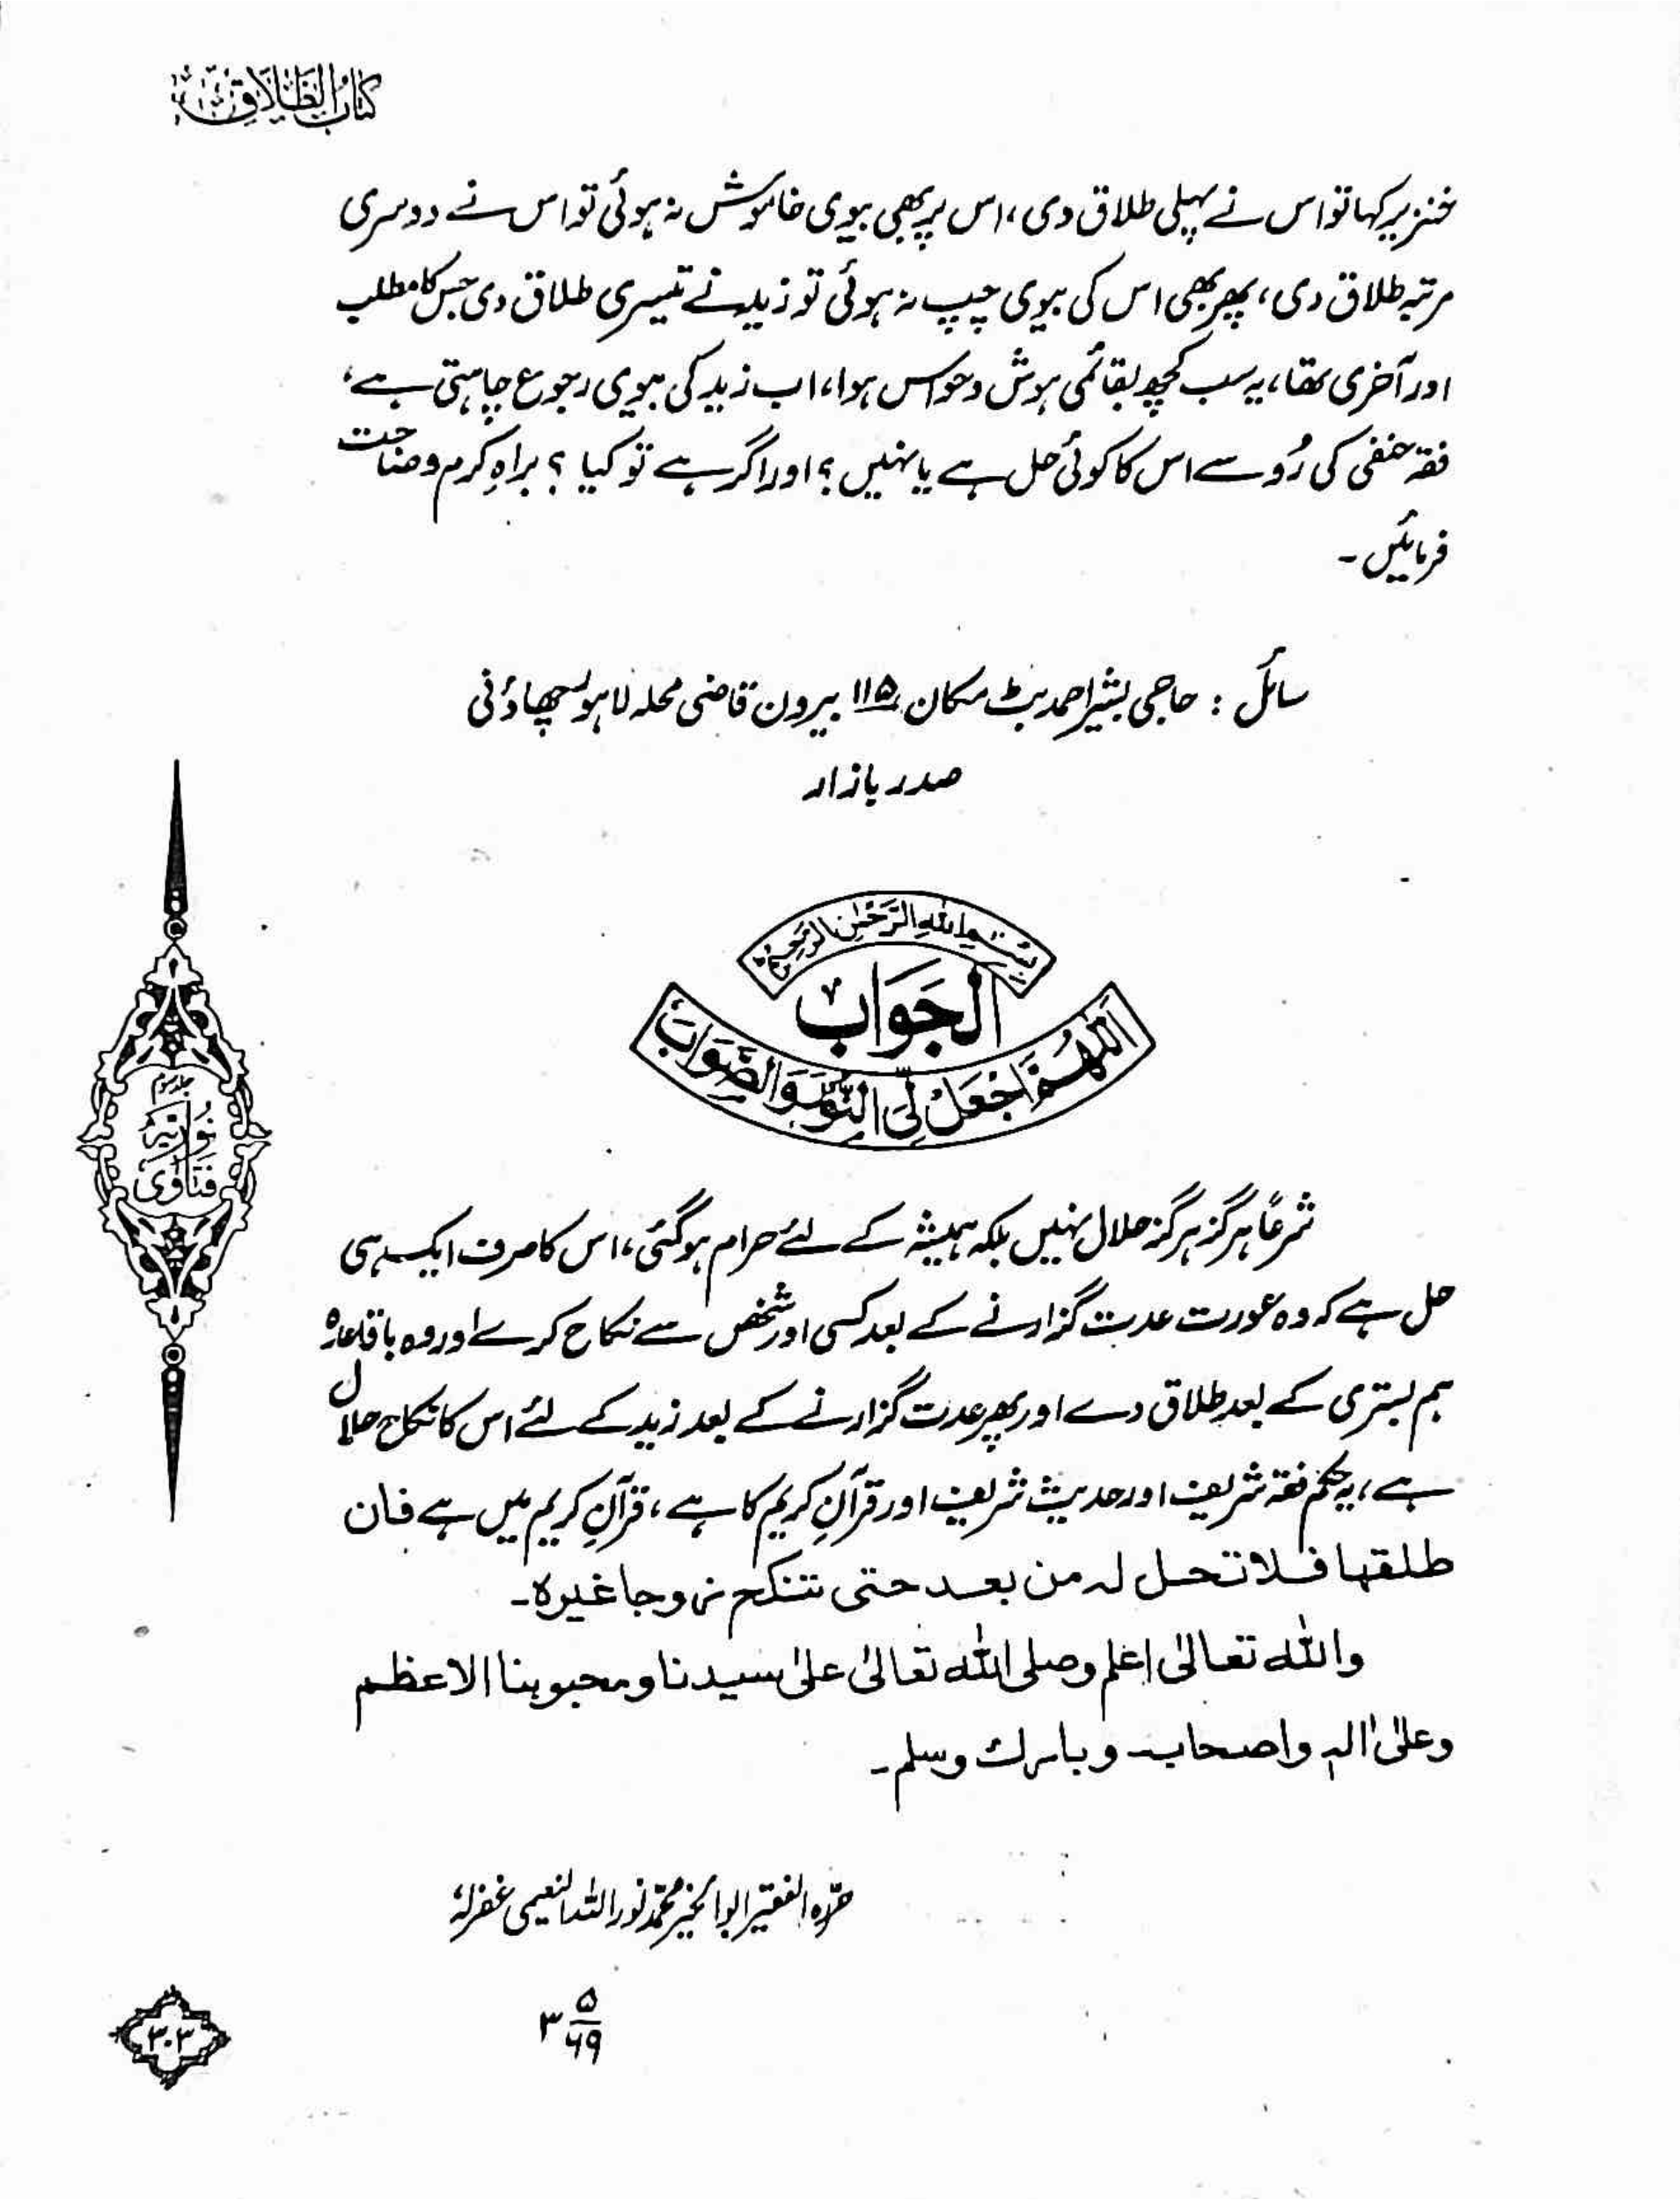 کتاب الطلاق
خنزیر کہا تو اس نے پہلی طلاق دی، اس پر بھی بیوی خاموش نہ ہوئی تو اس نے دوسری
مرتبہ طلاق دی، پھر بھی اس کی بیوی چپ نہ ہوئی تو زید نے تیسری طلاق دی جس کا مطلب
اور آخری تھا، یہ سب کچھ بقائمی ہوش و حواس ہوا، اب زید کی بیوی رجوع چاہتی ہے،
فقہ حنفی کی رُو سے اس کا کوئی حل ہے یا نہیں؟ اور اگر ہے تو کیا؟ براہِ کرم وضاحت
فرمائیں۔
سائل: حاجی بشیر احمد بٹ مکان ۱۱۵ بیرون قاضی محلہ لاہور چھاؤنی
صدر بازار
بِسْمِ اللهِ الرَّحْمٰنِ الرَّحِيْمِ
الجَوَابُ
اَللّٰهُمَّ اجْعَلْ لِيَ النُّوْرَ وَالصَّوَابَ
جلد سوم
نوریہ
فتاویٰ
شرعًا ہرگز ہرگز حلال نہیں بلکہ ہمیشہ کے لئے حرام ہوگئی، اس کا صرف ایک ہی
حل ہے کہ وہ عورت عدت گزارنے کے بعد کسی اور شخص سے نکاح کرے اور وہ باقاعدہ
ہم بستری کے بعد طلاق دے اور پھر عدت گزارنے کے بعد زید کے لئے اس کا نکاح حلال
ہے، یہ حکم فقہ شریف اور حدیث شریف اور قرآنِ کریم کا ہے، قرآنِ کریم میں ہے فان
طلقہا فلا تحل لہ من بعد حتی تنکح زوجا غیرہ۔
واللہ تعالیٰ اعلم وصلی اللہ تعالیٰ علیٰ سیدنا ومحبوبنا الاعظم
وعلیٰ اٰلہ واصحابہ وبارک وسلم۔
حرّرہ الفقیر ابوالخیر محمّد نور اللہ النعیمی غفرلہٗ
۳ ۵/۶۹
۳۰۳